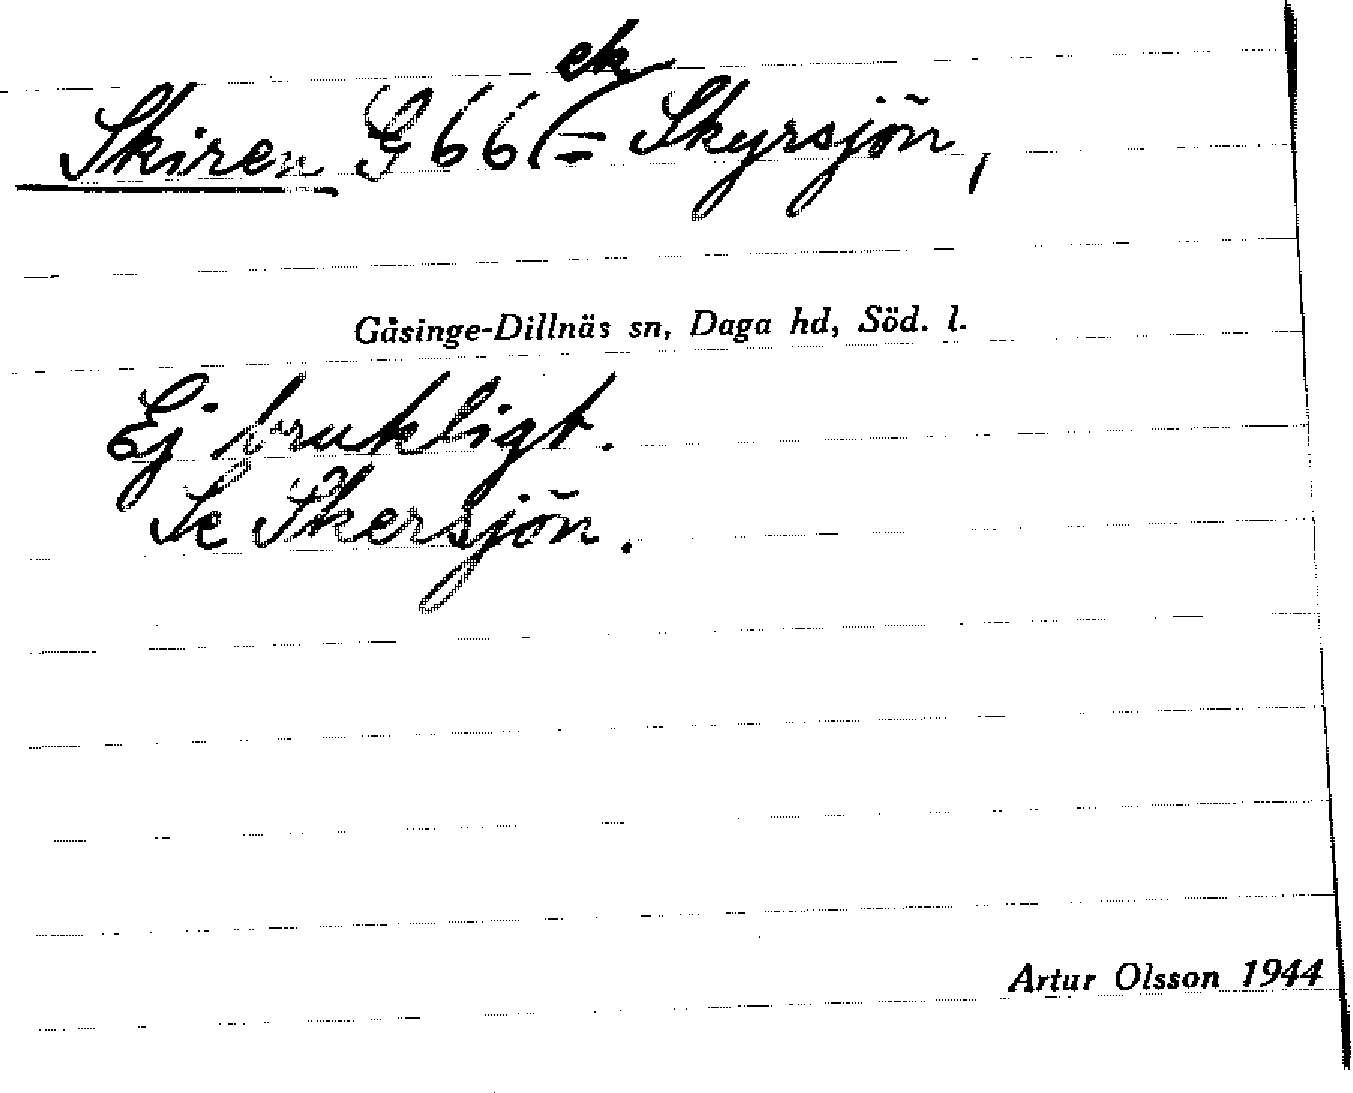 Skiren G 66 ( = Skyrsjön,
ek
Gåsinge-Dillnäs sn, Daga hd, Söd. l.
Ej brukligt.
Se Skersjön.
Artur Olsson 1944